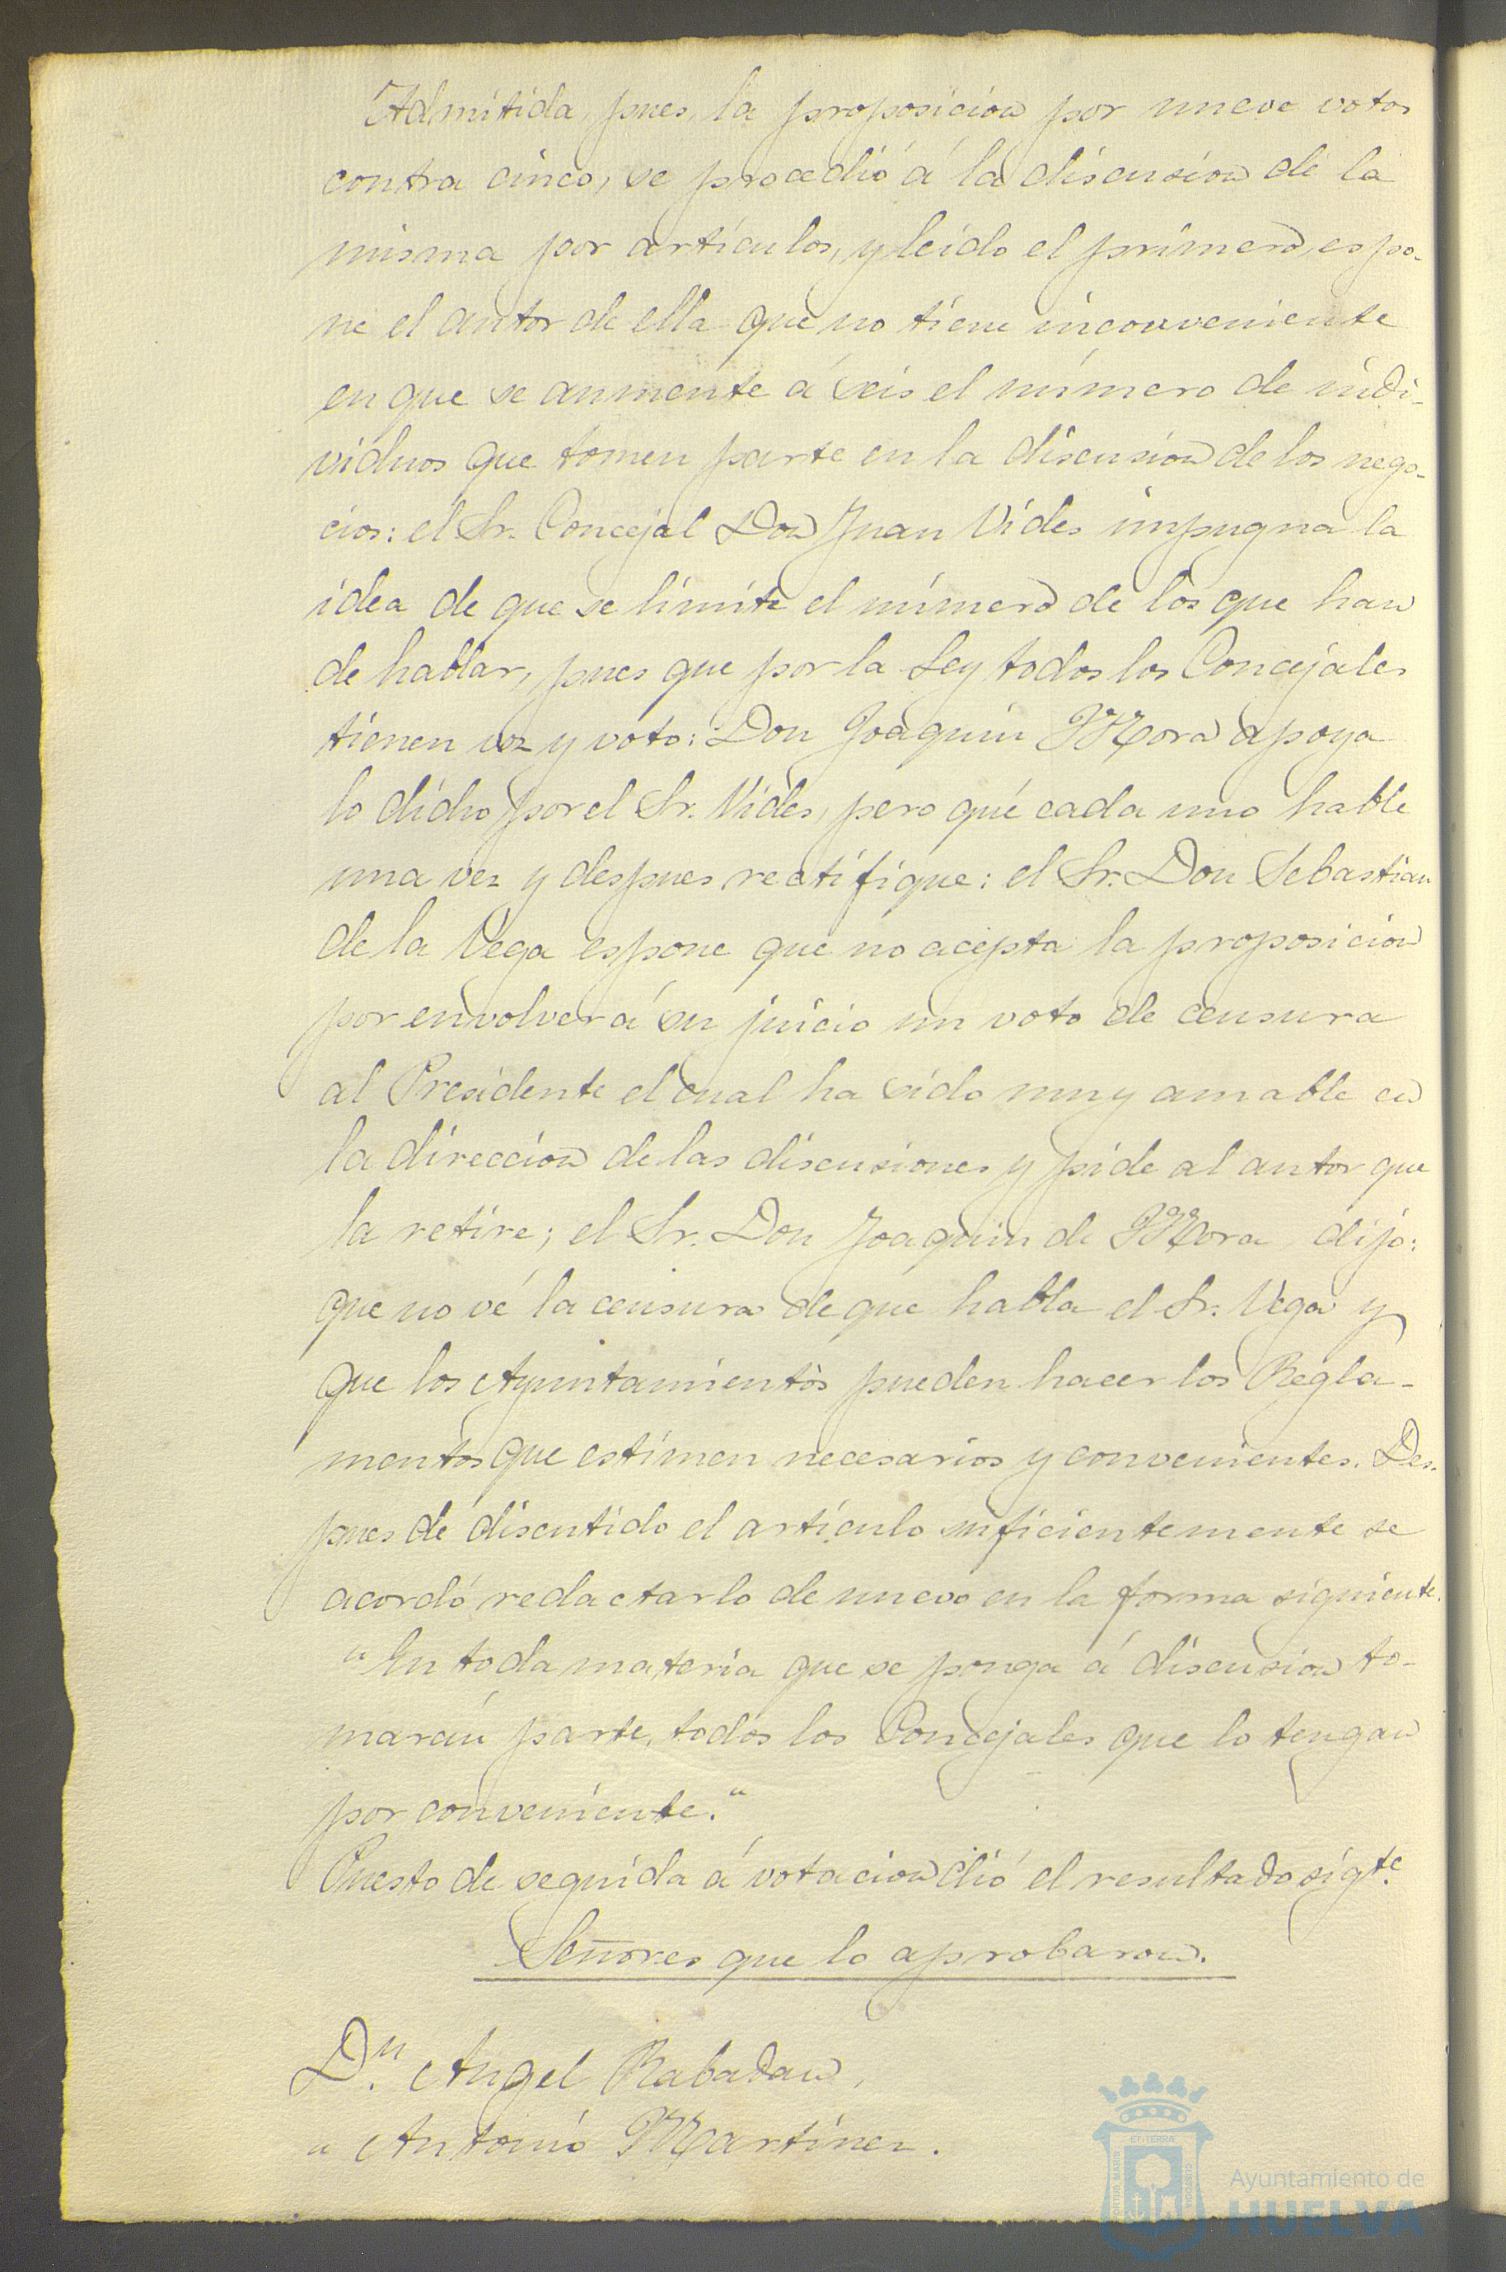 Admitida, pues, la proposicion por nueve votos
contra cinco, se procedió á la discusion de la
misma por artículos, y leido el primero, espo-
ne el autor de ella que no tiene inconveniente
en que se aumente á seis el número de indi-
viduos que tomen parte en la discusion de los nego-
cios: el Sr. Concejal Don Juan Vides impugna la
idea de que se limite el número de los que han
de hablar, pues que por la Ley todos los Concejales
tienen voz y voto: Don Joaquin Mora apoya
lo dicho por el Sr. Vides, pero qué cada uno hable
una vez y despues rectifique: el Sr. Don Sebastian
de la Vega espone que no acepta la proposicion
por envolver á su juicio un voto de censura
al Presidente el cual ha sido muy amable en
la direccion de las discusiones y pide al autor que
la retire; el Sr. Don Joaquin de Mora dijo:
que no vé la censura de que habla el Sr. Vega y
que los Ayuntamientos pueden hacer los Regla-
mentos que estimen necesarios y convenientes. Des-
pues de discutido el artículo suficientemente se
acordó redactarlo de nuevo en la forma siguiente.
"En toda materia que se ponga á discusion to-
marán parte, todos los Concejales que lo tengan
por conveniente."
Puesto de seguida á votacion dió el resultado sigte.
Señores que lo aprobaron.
Dn. Angel Rabadan,
" Antonio Martinez.
ET TERRA
PORTUS MARIS
CUSTODIA
Ayuntamiento de
HUELVA